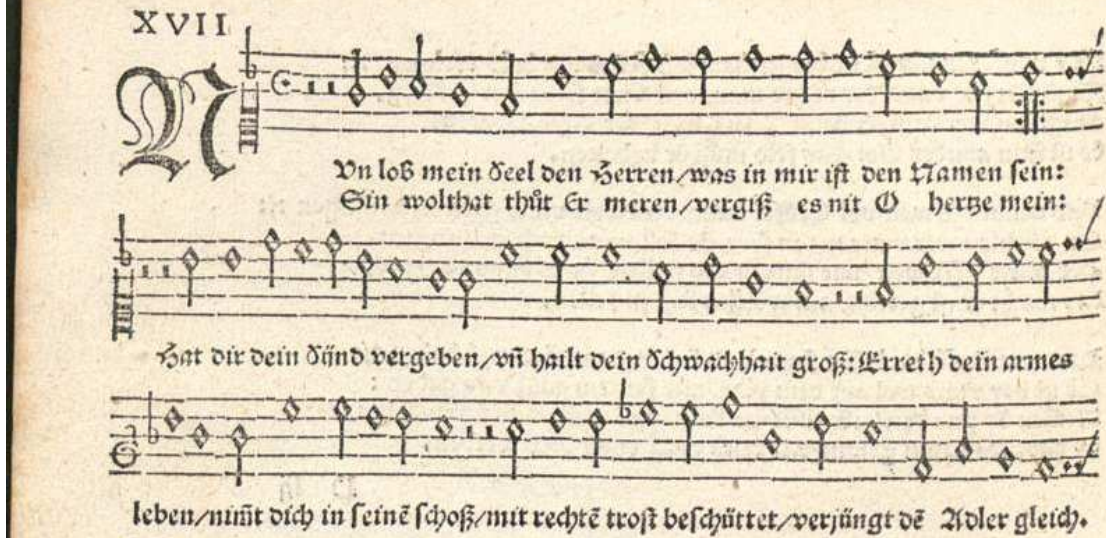 XVII
NVn loß mein Seel den Herren/was in mir ist den Namen sein:
Sin wolthat thůt Er meren/vergiß es nit O hertze mein:
Hat dir dein Sünd vergeben/vñ hailt dein Schwachhait groß: Erreth dein armes
leben/nim̃t dich in seinẽ schoß/mit rechtẽ trost beschüttet/verjüngt dẽ Adler gleich.